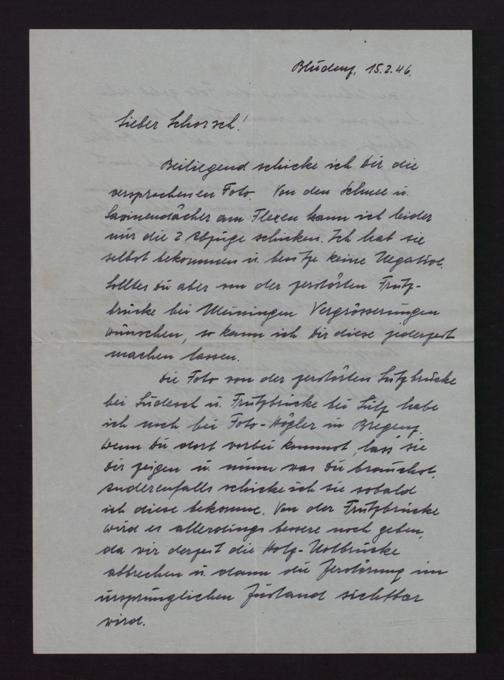 Bludenz, 15.2.46.
Lieber Schorsch!
Beiliegend schicke ich dir die
versprochenen Foto. Von den Schnee u.
Lavinendächer am Flexen kann ich leider
nur die 2 Abzüge schicken. Ich hab sie
selbst bekommen u. besitze keine Negative.
Solltest du aber von der zerstörten Frutz-
brücke bei Meiningen Vergrösserungen
wünschen, so kann ich dir diese jederzeit
machen lassen.
Die Foto von der zerstörten Lutzbrücke
bei Ludesch u. Frutzbrücke bei Sulz habe
ich noch bei Foto-Högler in Bregenz.
Wenn du dort vorbei kommst, lass' sie
dir zeigen u. nimm was du brauchst.
Anderenfalls schicke ich sie sobald
ich diese bekomme. Von der Frutzbrücke
wird es allerdings bessere noch geben,
da wir derzeit die Holz-Notbrücke
abbrechen u. dann die Zerstörung im
ursprünglichen Zustand sichtbar
wird.